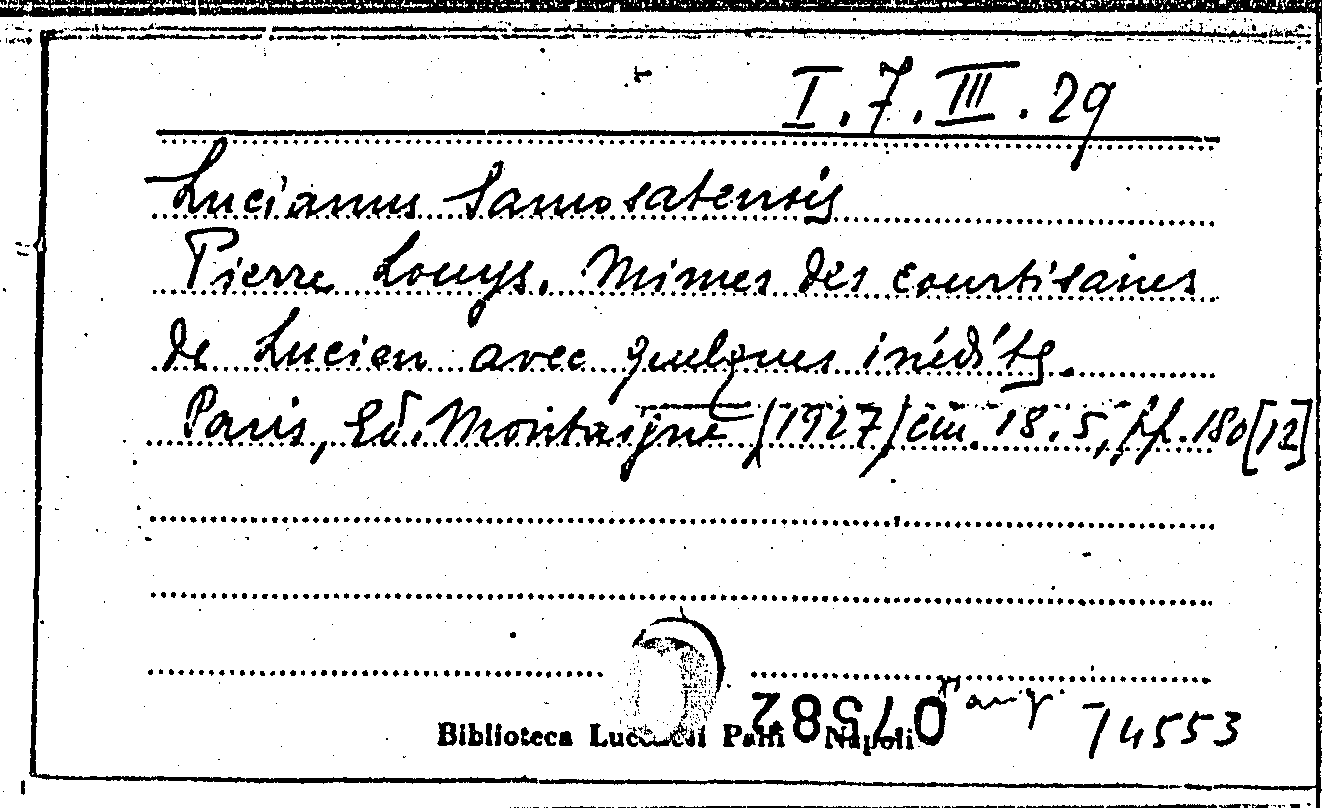 I.7.III.29
Lucianus Samosatensis
Pierre Louys. Mimes des courtisanes
de Lucien avec quelques inédits.
Paris, Ed. Montaigne (1927) cm. 18.5, pp. 180 [12]
Biblioteca Lucchesi Palli Napoli
74553